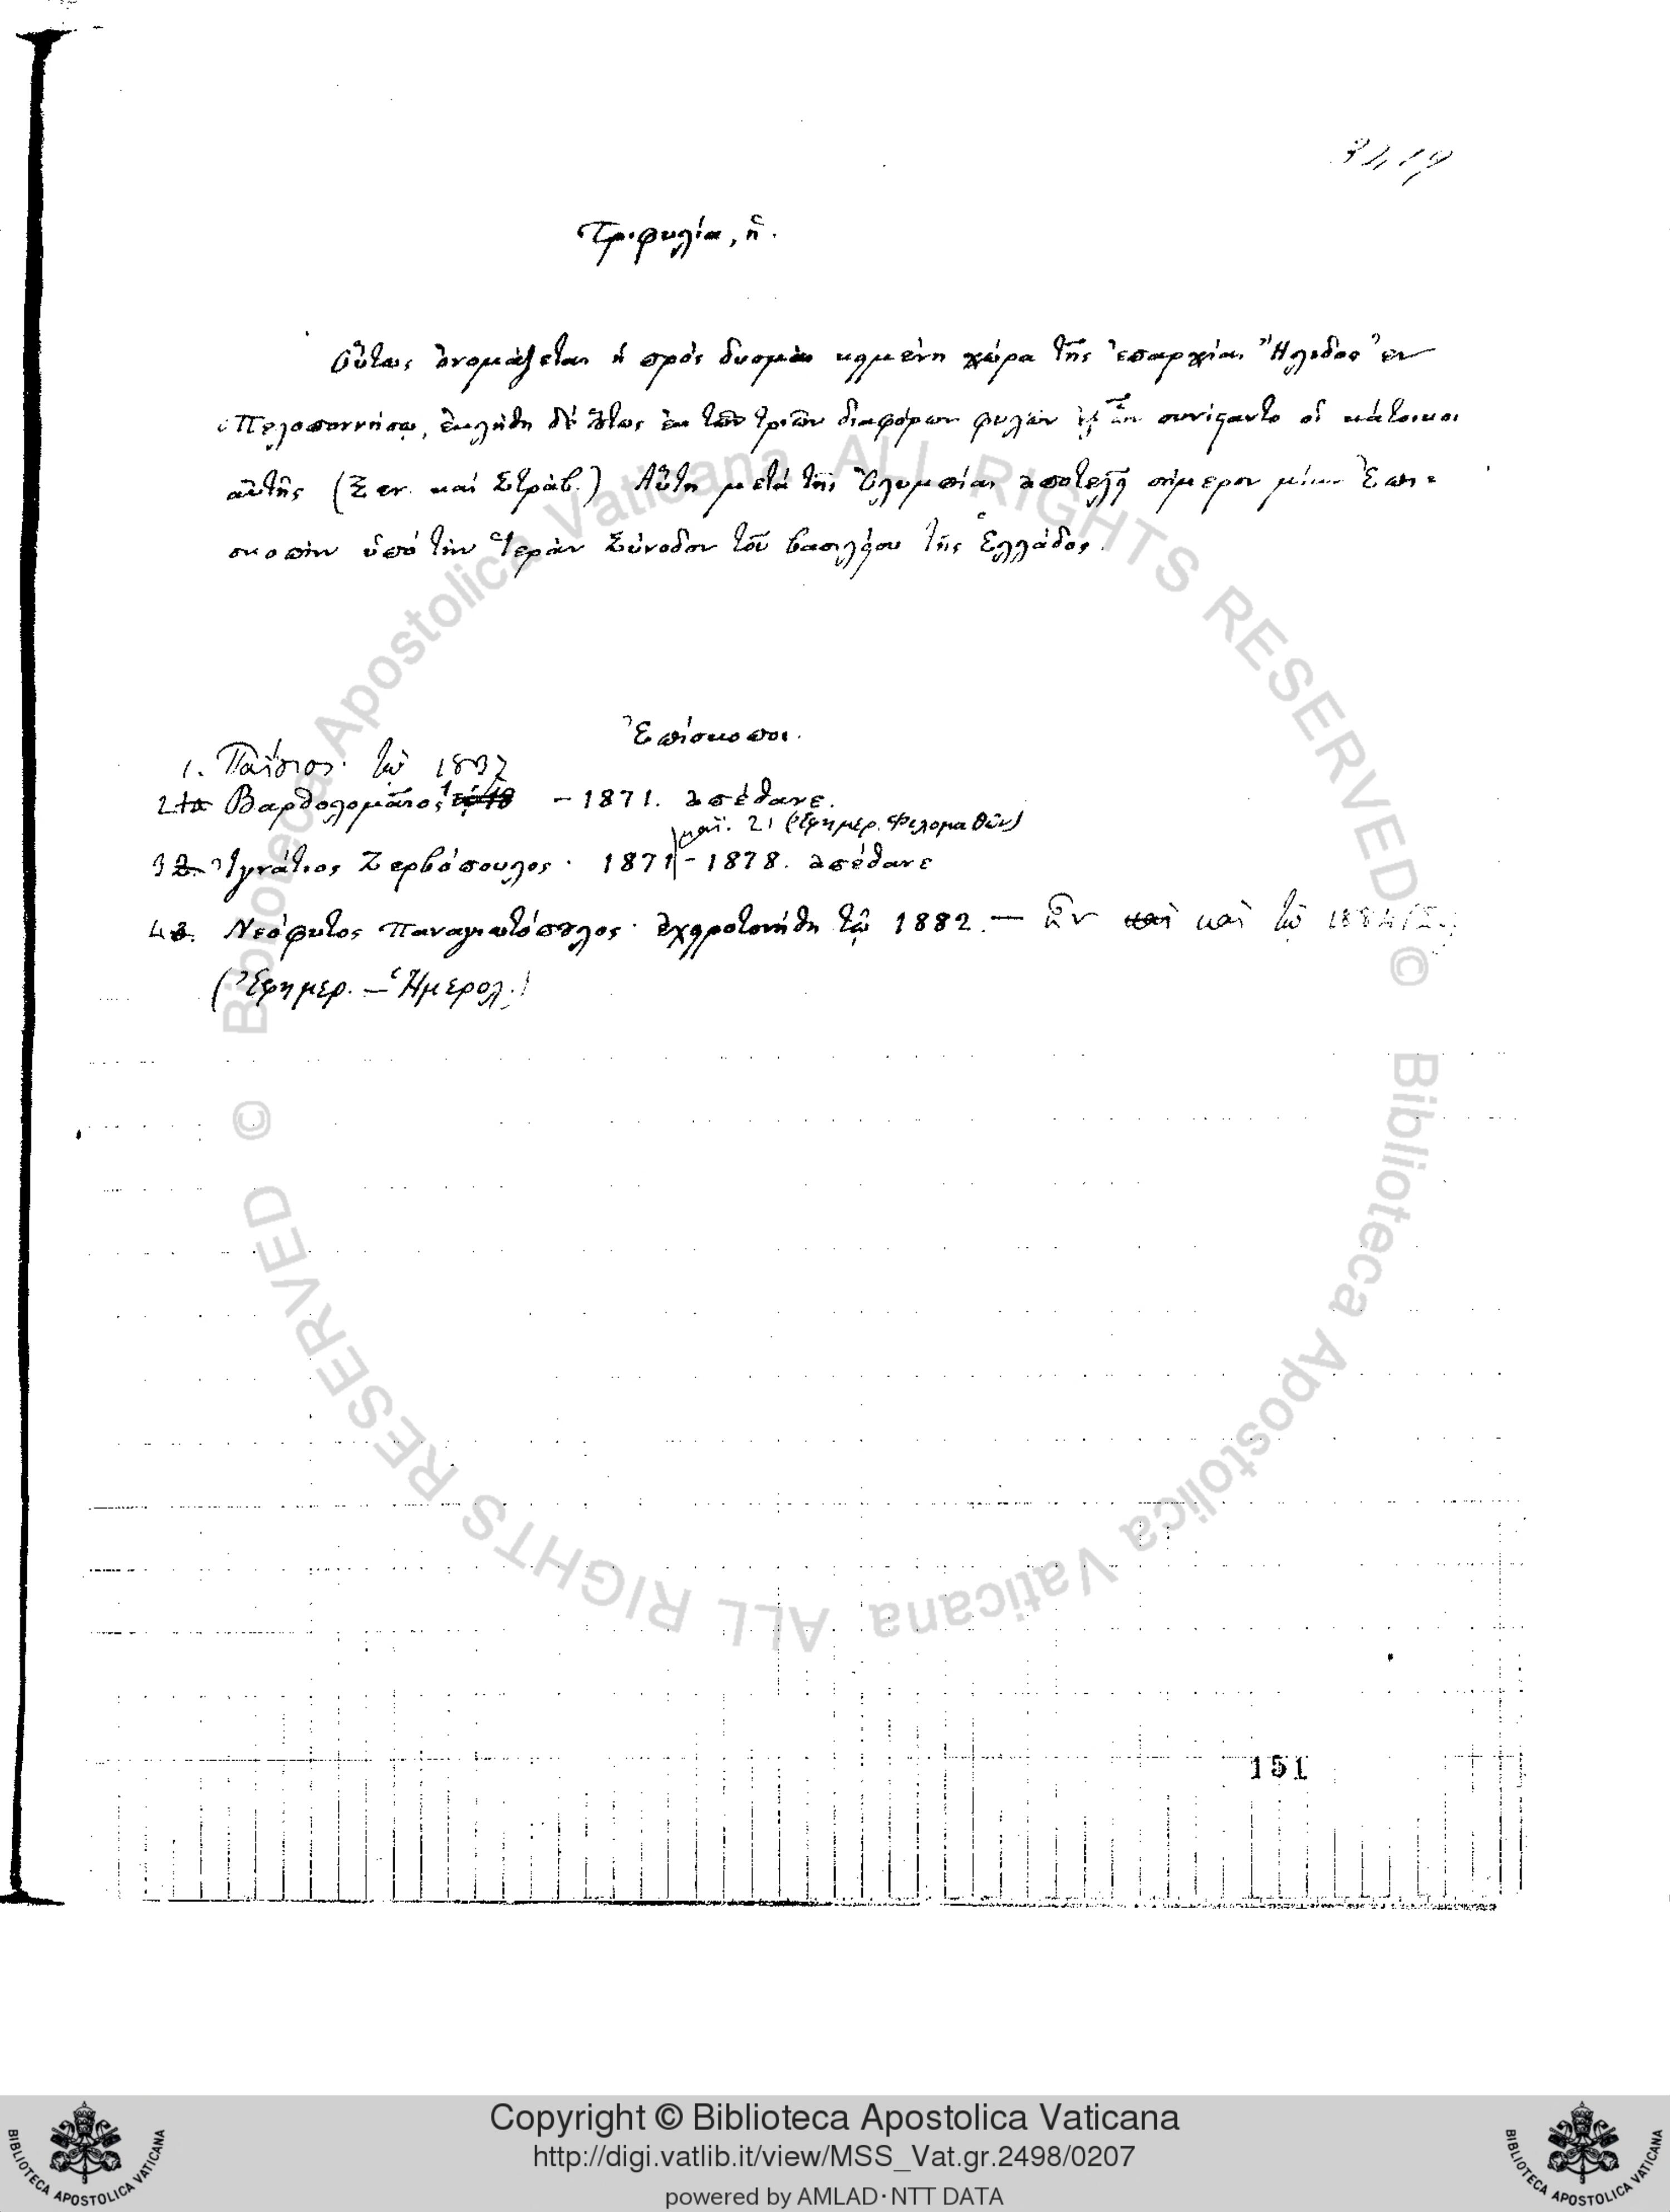 Τριφυλία, ἡ.
Οὕτως ὀνομάζεται ἡ πρὸς δυσμὰς κειμένη χώρα τῆς ἐπαρχίας Ἤλιδος ἐν
Πελοποννήσῳ, ἐκλήθη δὲ οὕτως ἐκ τῶν τριῶν διαφόρων φυλῶν ἐξ ὧν συνίσταντο οἱ κάτοικοι
αὐτῆς (Ξεν. καὶ Στράβ.) Αὕτη μετὰ τῆς Ὀλυμπίας ἀποτελεῖ σήμερον μίαν Ἐπι-
σκοπὴν ὑπὸ τὴν Ἱερὰν Σύνοδον τοῦ βασιλείου τῆς Ἑλλάδος.
Ἐπίσκοποι.
1. Παΐσιος· τῷ 1837
2 Βαρθολομαῖος – 1871. ἀπέθανε.
μαΐ. 21 (Ἐφημερ. Φιλομαθῶν)
3 Ἰγνάτιος Ζερβόπουλος· 1871 – 1878. ἀπέθανε
4. Νεόφυτος Παναγιωτόπουλος· ἐχειροτονήθη τῷ 1882. — ἦν καὶ τῷ 1884
(Ἐφημερ. – Ἡμερολ.)
151
© Biblioteca Apostolica Vaticana ALL RIGHTS RESERVED
© Biblioteca Apostolica Vaticana ALL RIGHTS RESERVED
Copyright © Biblioteca Apostolica Vaticana
http://digi.vatlib.it/view/MSS_Vat.gr.2498/0207
powered by AMLAD·NTT DATA
BIBLIOTECA APOSTOLICA VATICANA
BIBLIOTECA APOSTOLICA VATICANA